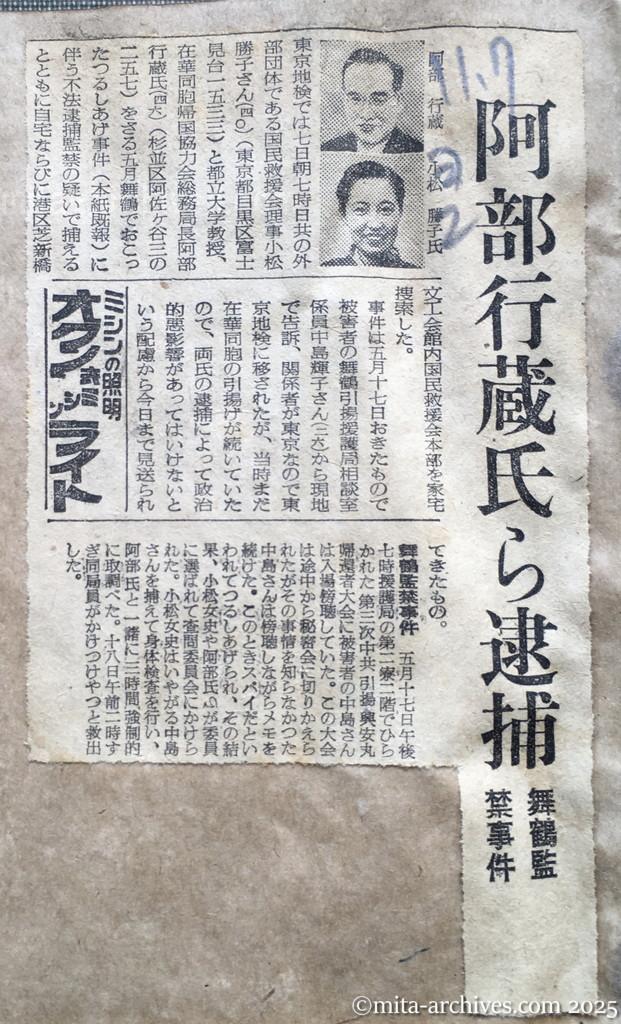 阿部行蔵氏ら逮捕
舞鶴監
禁事件
11.7
日
2
阿部 行蔵
小松 勝子氏
東京地検では七日朝七時日共の外
部団体である国民救援会理事小松
勝子さん(四〇)(東京都目黒区富士
見台一五三三)と都立大学教授、
在華同胞帰国協力会総務局長阿部
行蔵氏(四六)(杉並区阿佐ケ谷三の
二五七)をさる五月舞鶴でおこっ
たつるしあげ事件(本紙既報)に
伴う不法逮捕監禁の疑いで捕える
とともに自宅ならびに港区芝新橋
文工会館内国民救援会本部を家宅
捜索した。
事件は五月十七日おきたもので
被害者の舞鶴引揚援護局相談室
係員中島輝子さん(二六)から現地
で告訴、関係者が東京なので東
京地検に移されたが、当時まだ
在華同胞の引揚げが続いていた
ので、両氏の逮捕によって政治
的悪影響があってはいけないと
いう配慮から今日まで見送られ
てきたもの。
舞鶴監禁事件 五月十七日午後
七時援護局の第一寮二階でひら
かれた第三次中共引揚興安丸
帰還者大会に被害者の中島さん
は入場傍聴していた。この大会
は途中から秘密会に切りかえら
れたがその事情を知らなかつた
中島さんは傍聴しながらメモを
続けた。このときスパイだとい
われてつるしあげられ、その結
果、小松女史や阿部氏らが委員
に選ばれて査問委員会にかけら
れた。小松女史はいやがる中島
さんを捕えて身体検査を行い、
阿部氏と一緒に三時間強制的
に取調べた。十八日午前二時す
ぎ同局員がかけつけやつと救出
した。
ミシンの照明
オクンボミシンライト
©mita-archives.com 2025